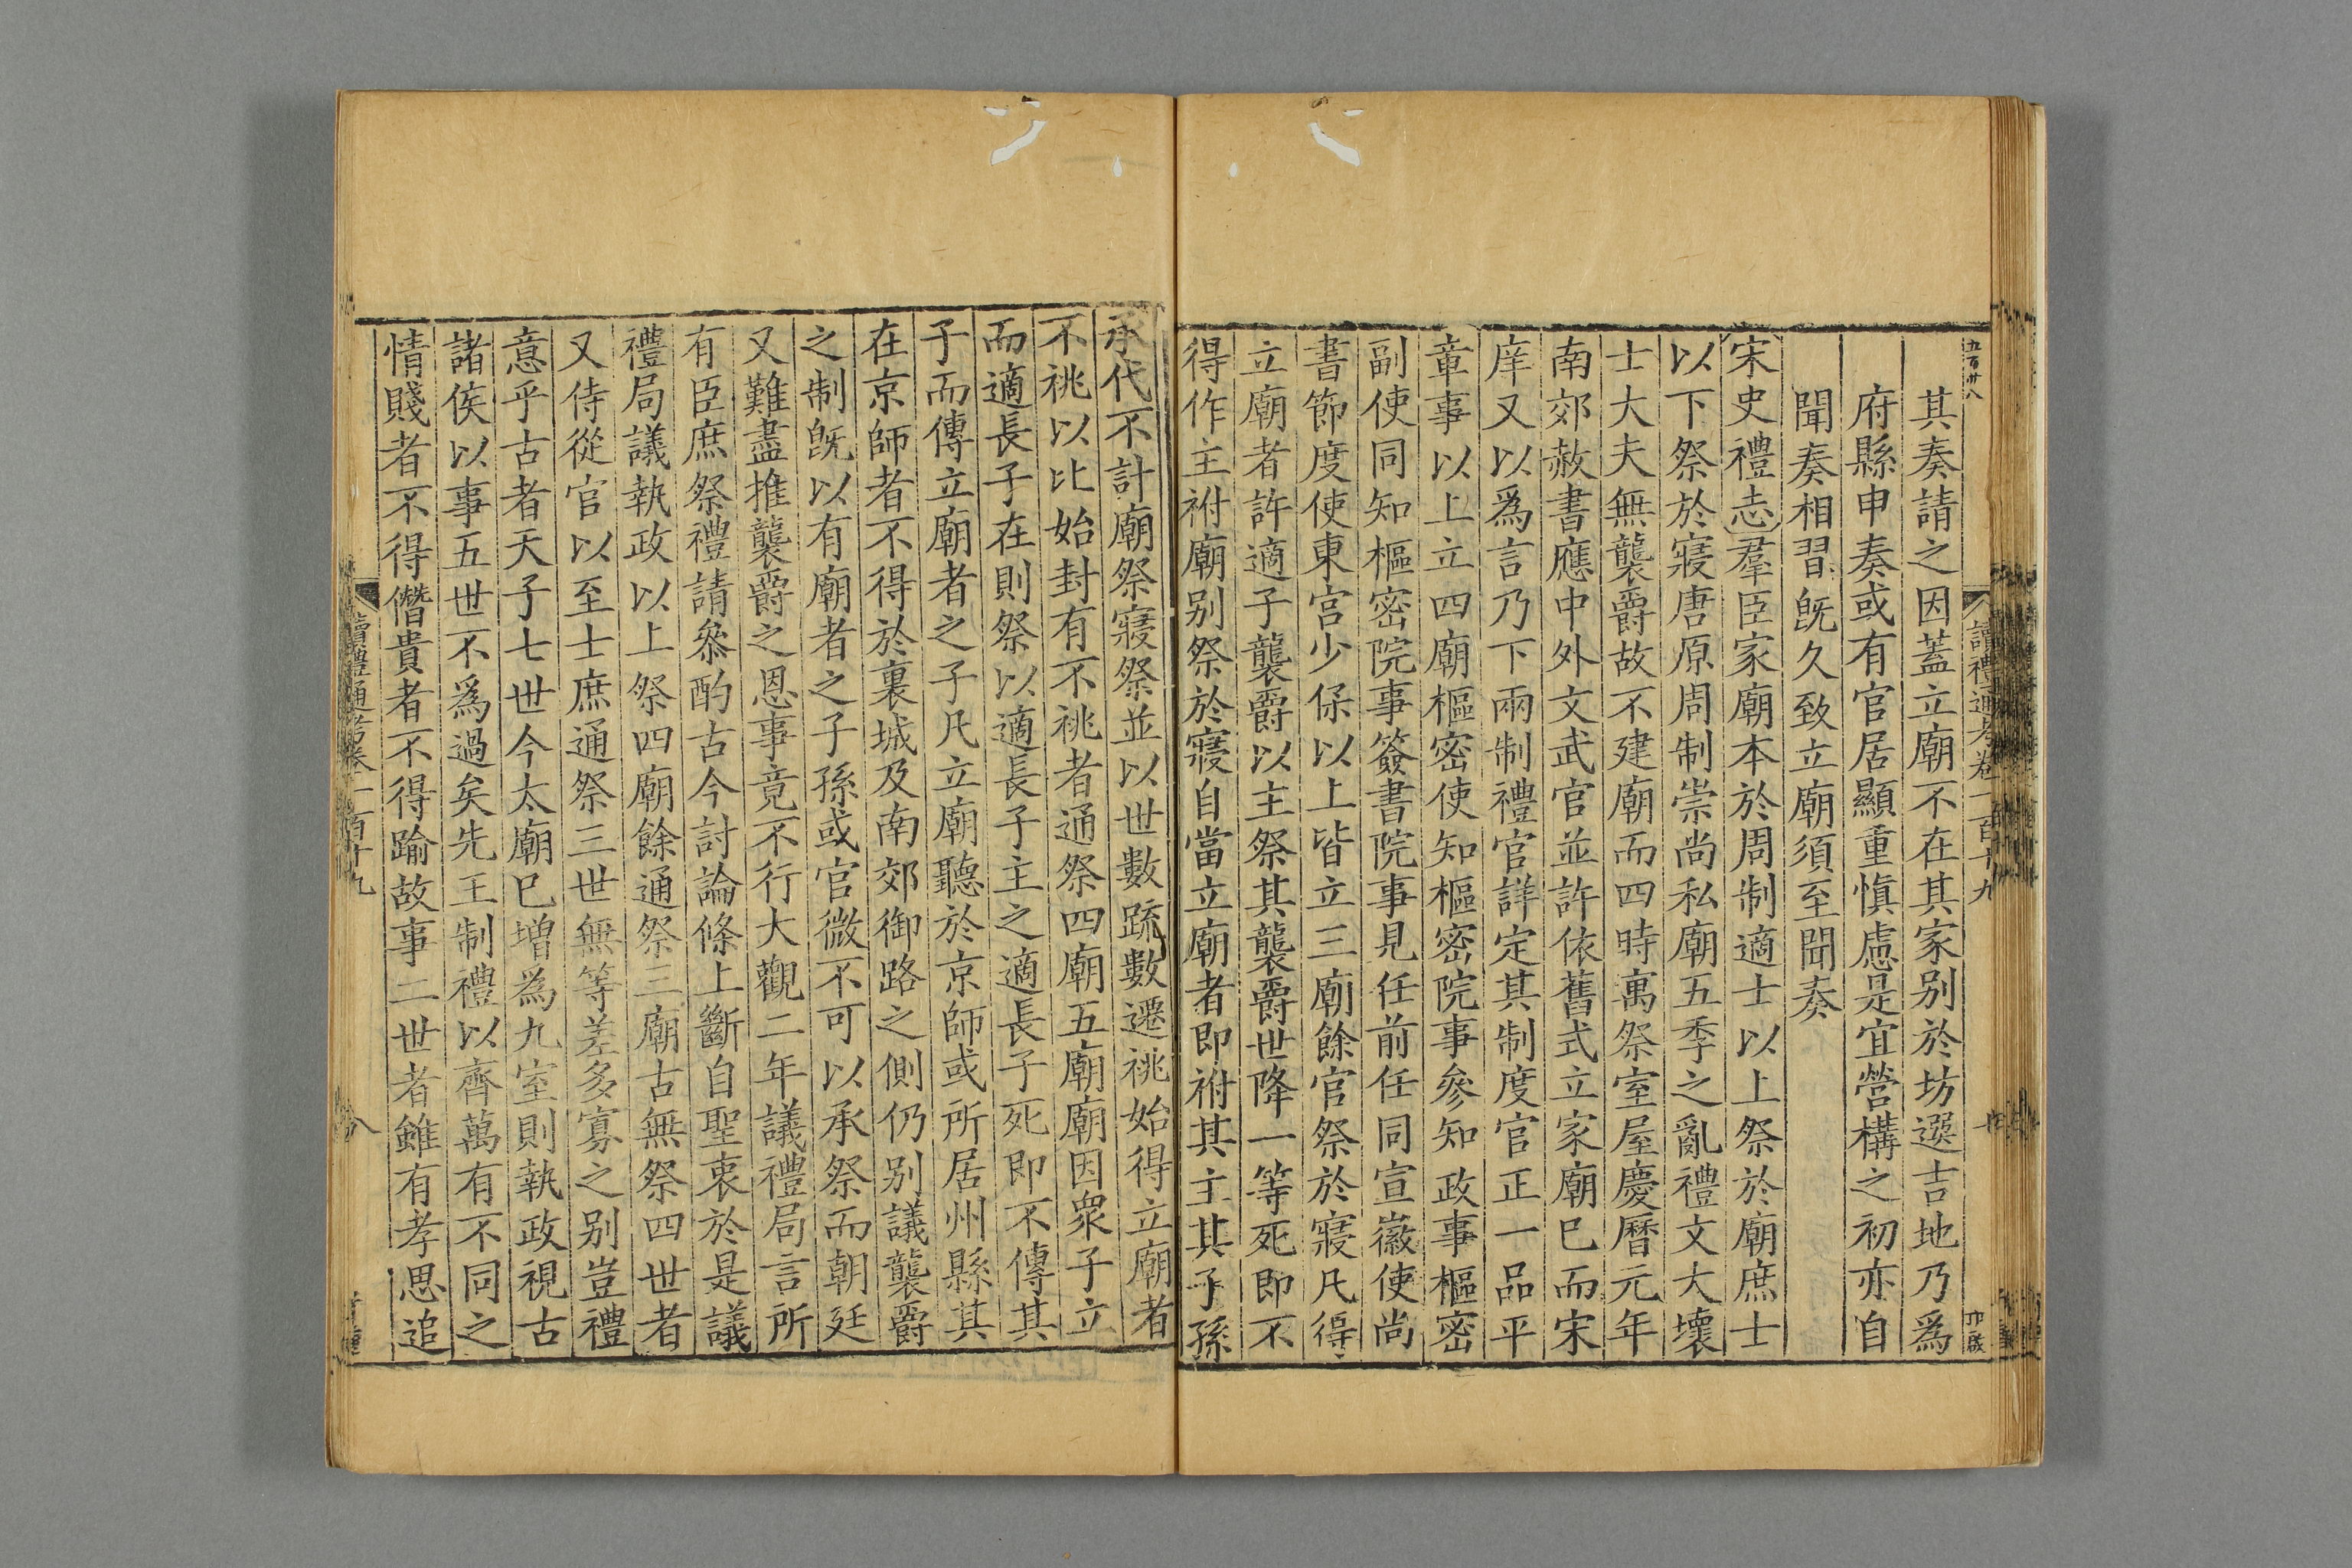 五百卅八
讀禮通考卷一百十九
其奏請之因蓋立廟不在其家别於坊選吉地乃爲
府縣申奏或有官居顯重愼慮是宜營構之初亦自
聞奏相習旣久致立廟須至聞奏
宋史禮志羣臣家廟本於周制適士以上祭於廟庶士
以下祭於寢唐原周制崇尚私廟五季之亂禮文大壞
士大夫無襲爵故不建廟而四時寓祭室屋慶曆元年
南郊赦書應中外文武官並許依舊式立家廟巳而宋
庠又以爲言乃下兩制禮官詳定其制度官正一品平
章事以上立四廟樞密使知樞密院事參知政事樞密
副使同知樞密院事簽書院事見任前任同宣徽使尚
書節度使東宮少保以上皆立三廟餘官祭於寢凡得
立廟者許適子襲爵以主祭其襲爵世降一等死即不
得作主祔廟别祭於寢自當立廟者即祔其主其子孫
承代不計廟祭寢祭並以世數疏數遷祧始得立廟者
不祧以比始封有不祧者通祭四廟五廟廟因衆子立
而適長子在則祭以適長子主之適長子死即不傳其
子而傳立廟者之子凡立廟聽於京師或所居州縣其
在京師者不得於裏城及南郊御路之側仍别議襲爵
之制旣以有廟者之子孫或官微不可以承祭而朝廷
又難盡推襲爵之恩事竟不行大觀二年議禮局言所
有臣庶祭禮請叅酌古今討論條上斷自聖衷於是議
禮局議執政以上祭四廟餘通祭三廟古無祭四世者
又侍從官以至士庶通祭三世無等差多寡之别豈禮
意乎古者天子七世今太廟巳增爲九室則執政視古
諸侯以事五世不爲過矣先王制禮以齊萬有不同之
情賤者不得僭貴者不得踰故事二世者雖有孝思追
讀禮通考卷一百十九